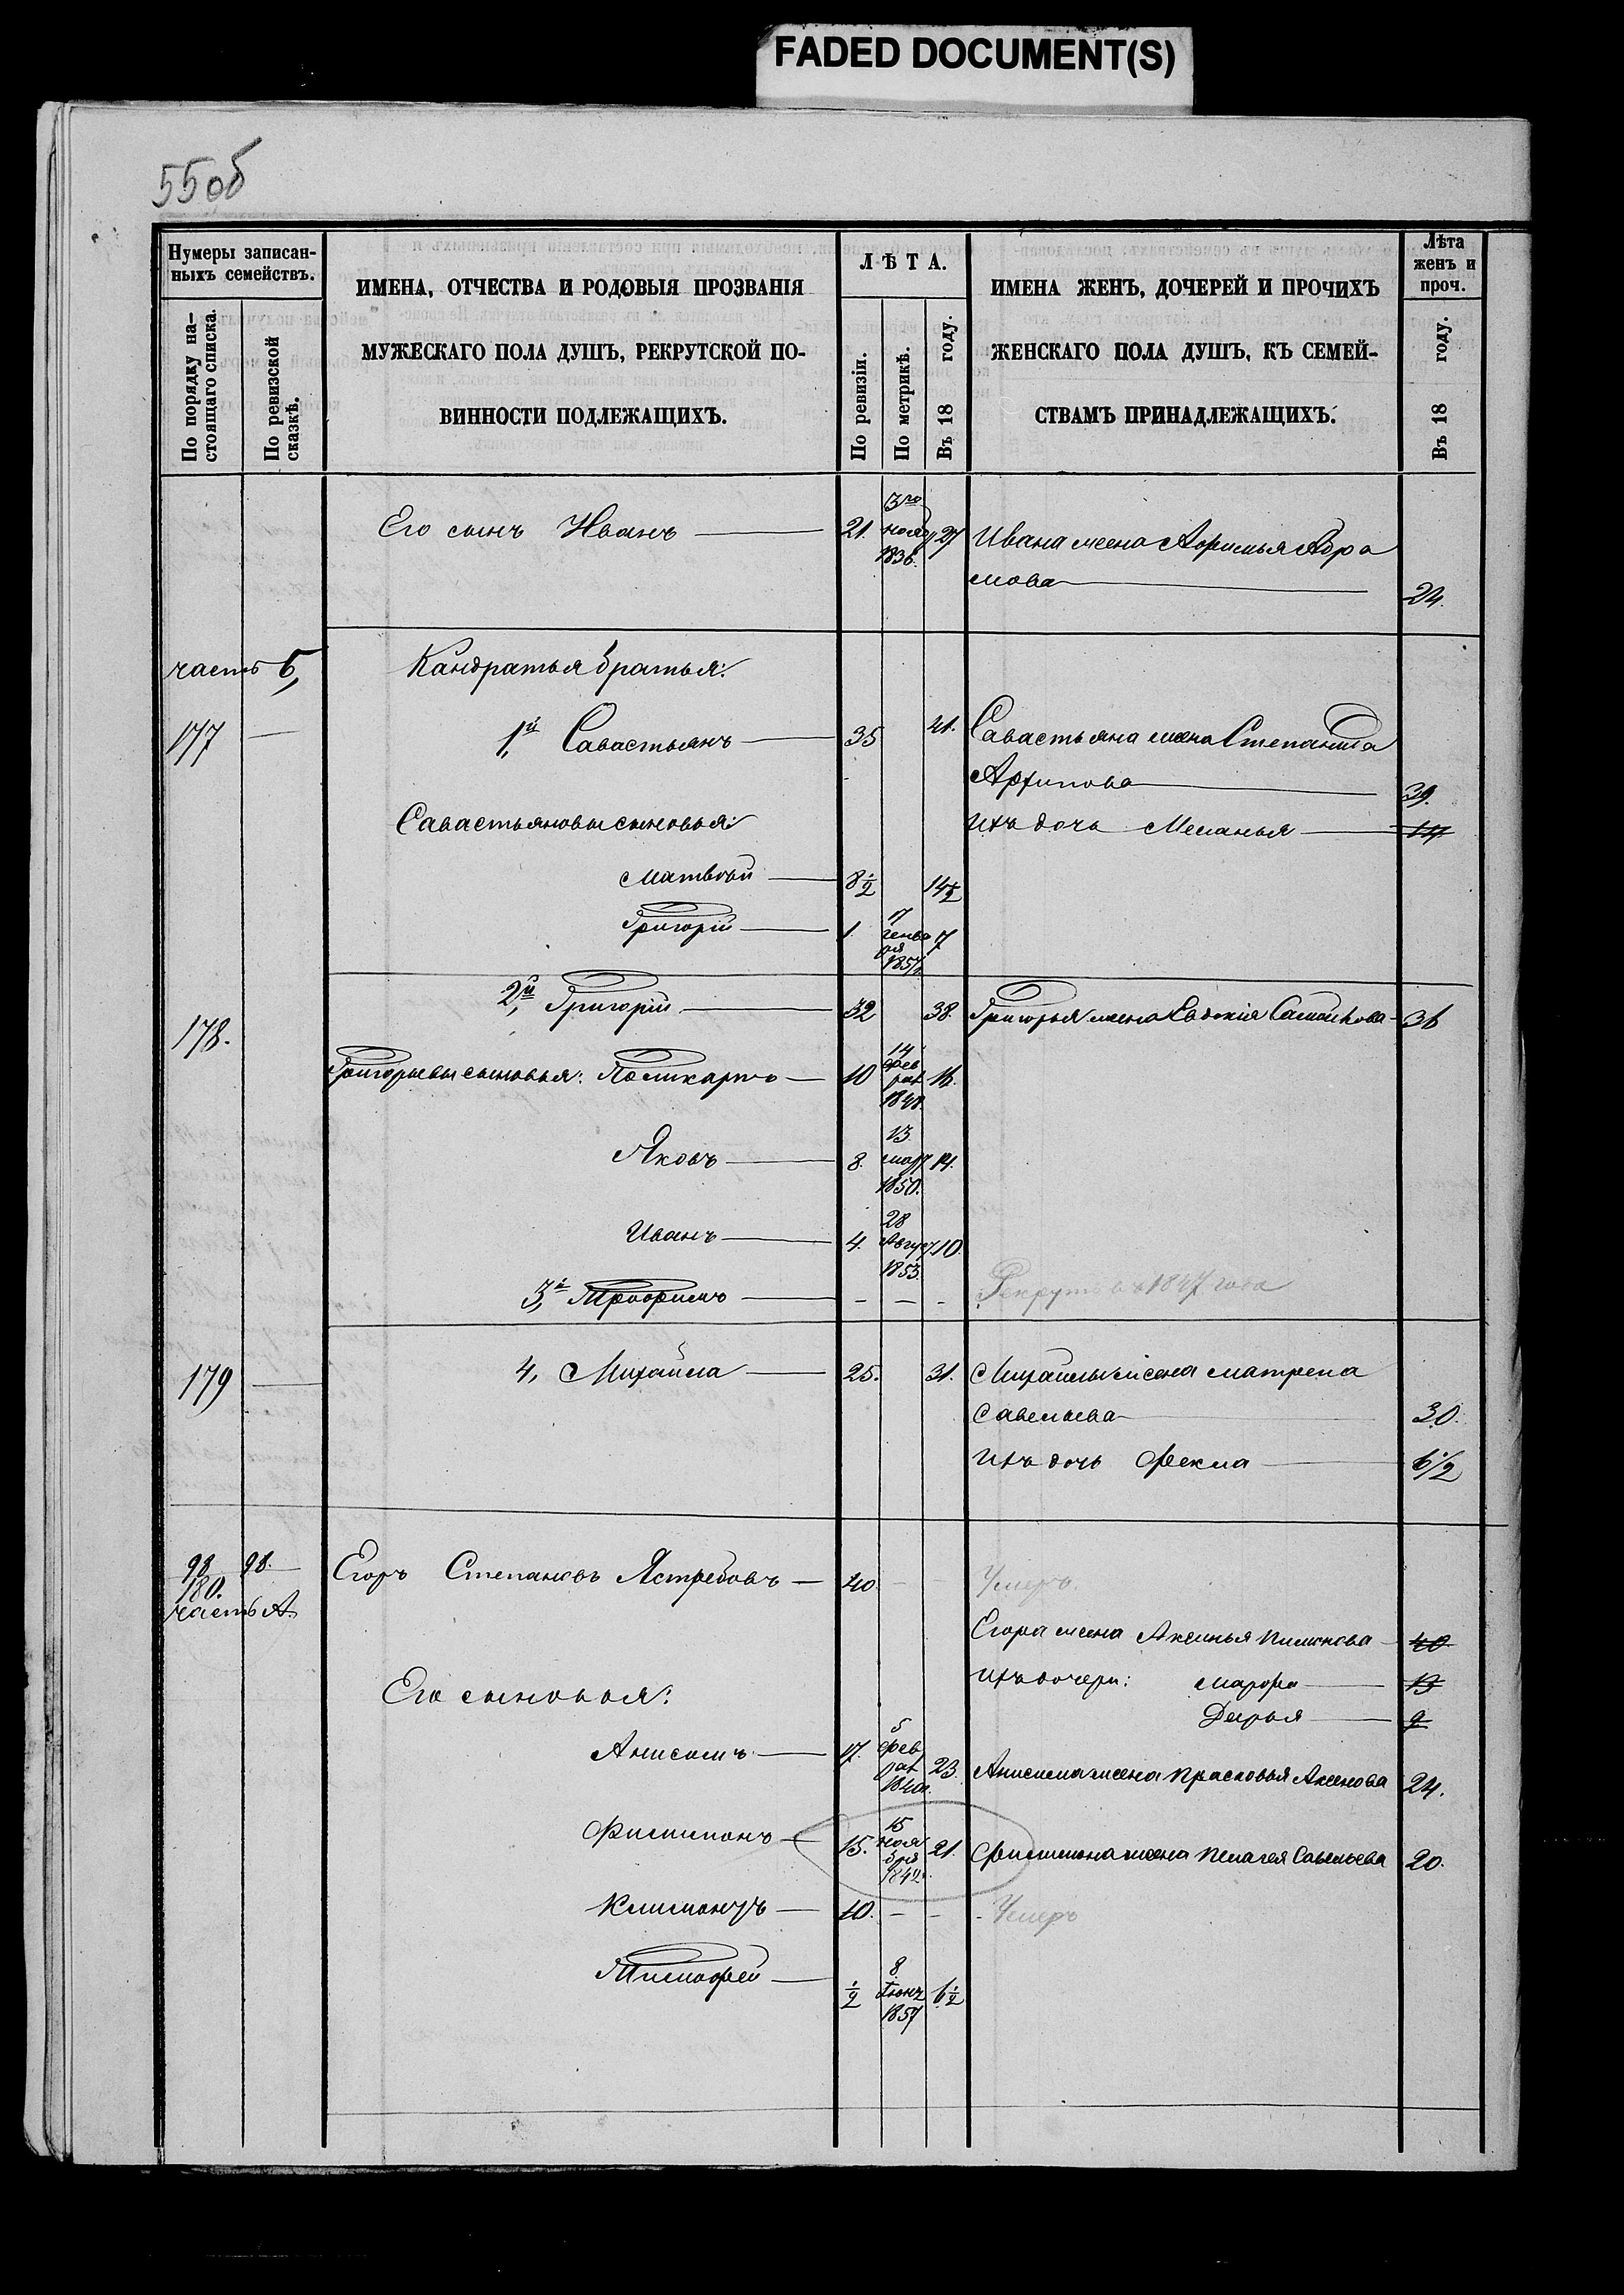 FADED DOCUMENT(S)
55об
Нумеры записан-
ныхъ семействъ.
По порядку на-
стоящаго списка.
По ревизской
сказкѣ.
ИМЕНА, ОТЧЕСТВА И РОДОВЫЯ ПРОЗВАНІЯ
МУЖЕСКАГО ПОЛА ДУШЪ, РЕКРУТСКОЙ ПО-
ВИННОСТИ ПОДЛЕЖАЩИХЪ.
ЛѢТА.
По ревизіи.
По метрикѣ.
Въ 18 году.
ИМЕНА ЖЕНЪ, ДОЧЕРЕЙ И ПРОЧИХЪ
ЖЕНСКАГО ПОЛА ДУШЪ, КЪ СЕМЕЙ-
СТВАМЪ ПРИНАДЛЕЖАЩИХЪ.
Лѣта
женъ и
проч.
Въ 18 году.
Его сынъ Иванъ 21. 3го нояб 1836. 27 Ивана жена Афимья Абра
мова 24.
часть Б,
Кандратья братья:
177 1,й Савастьянъ 35 41. Савастьяна жена Степанида
Архипова 39.
Савастьяновы сыновья: ихъ дочь Меланья 14
Матвѣй 8½ 14½
Григорій 1. 17 генваря 1857 7
178. 2,й Григорій 32 38. Григорья жена Евдокія Самойлова 36
Григорьевы сыновья: Поликарпъ 10 14 феврал 1848. 16.
Яковъ 8. 13 мар 1850. 14.
Иванъ 4. 28 Авгу 1853. 10.
3,й Трофимъ - - - Рекрутъ въ 1847 года
179 4, Михайла 25. 31. Михайлы жена Матрена
Савельева 30.
ихъ дочь Фекла 6½
98 98.
180. Егоръ Степановъ Ястребовъ 40 - - Умеръ.
часть А
Егора жена Аксинья Пилонова 40
ихъ дочери: Марфа 13
Его сыновья:
Дарья 9
Анисимъ 17. 5 феврал 1840. 23. Анисима жена Прасковья Аксенова 24.
Филимонъ 15. 15 ноября 1842. 21. Филимона жена Пелагея Савельева 20.
Климонтъ 10. - - - Умеръ
Тимофей ½ 8 Iюня 1857 6½